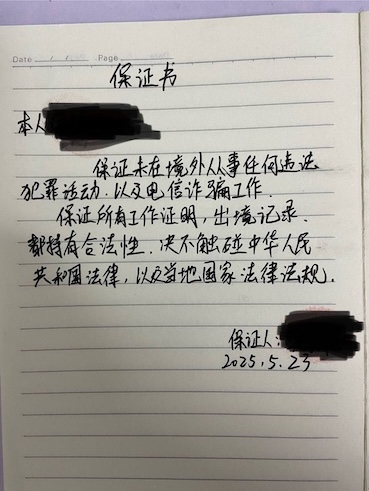 Date / / Page
保证书
本人
保证未在境外从事任何违法
犯罪活动.以及电信诈骗工作.
保证所有工作证明,出境记录.
都持有合法性.决不触碰中华人民
共和国法律,以及当地国家法律法规.
保证人:
2025.5.23